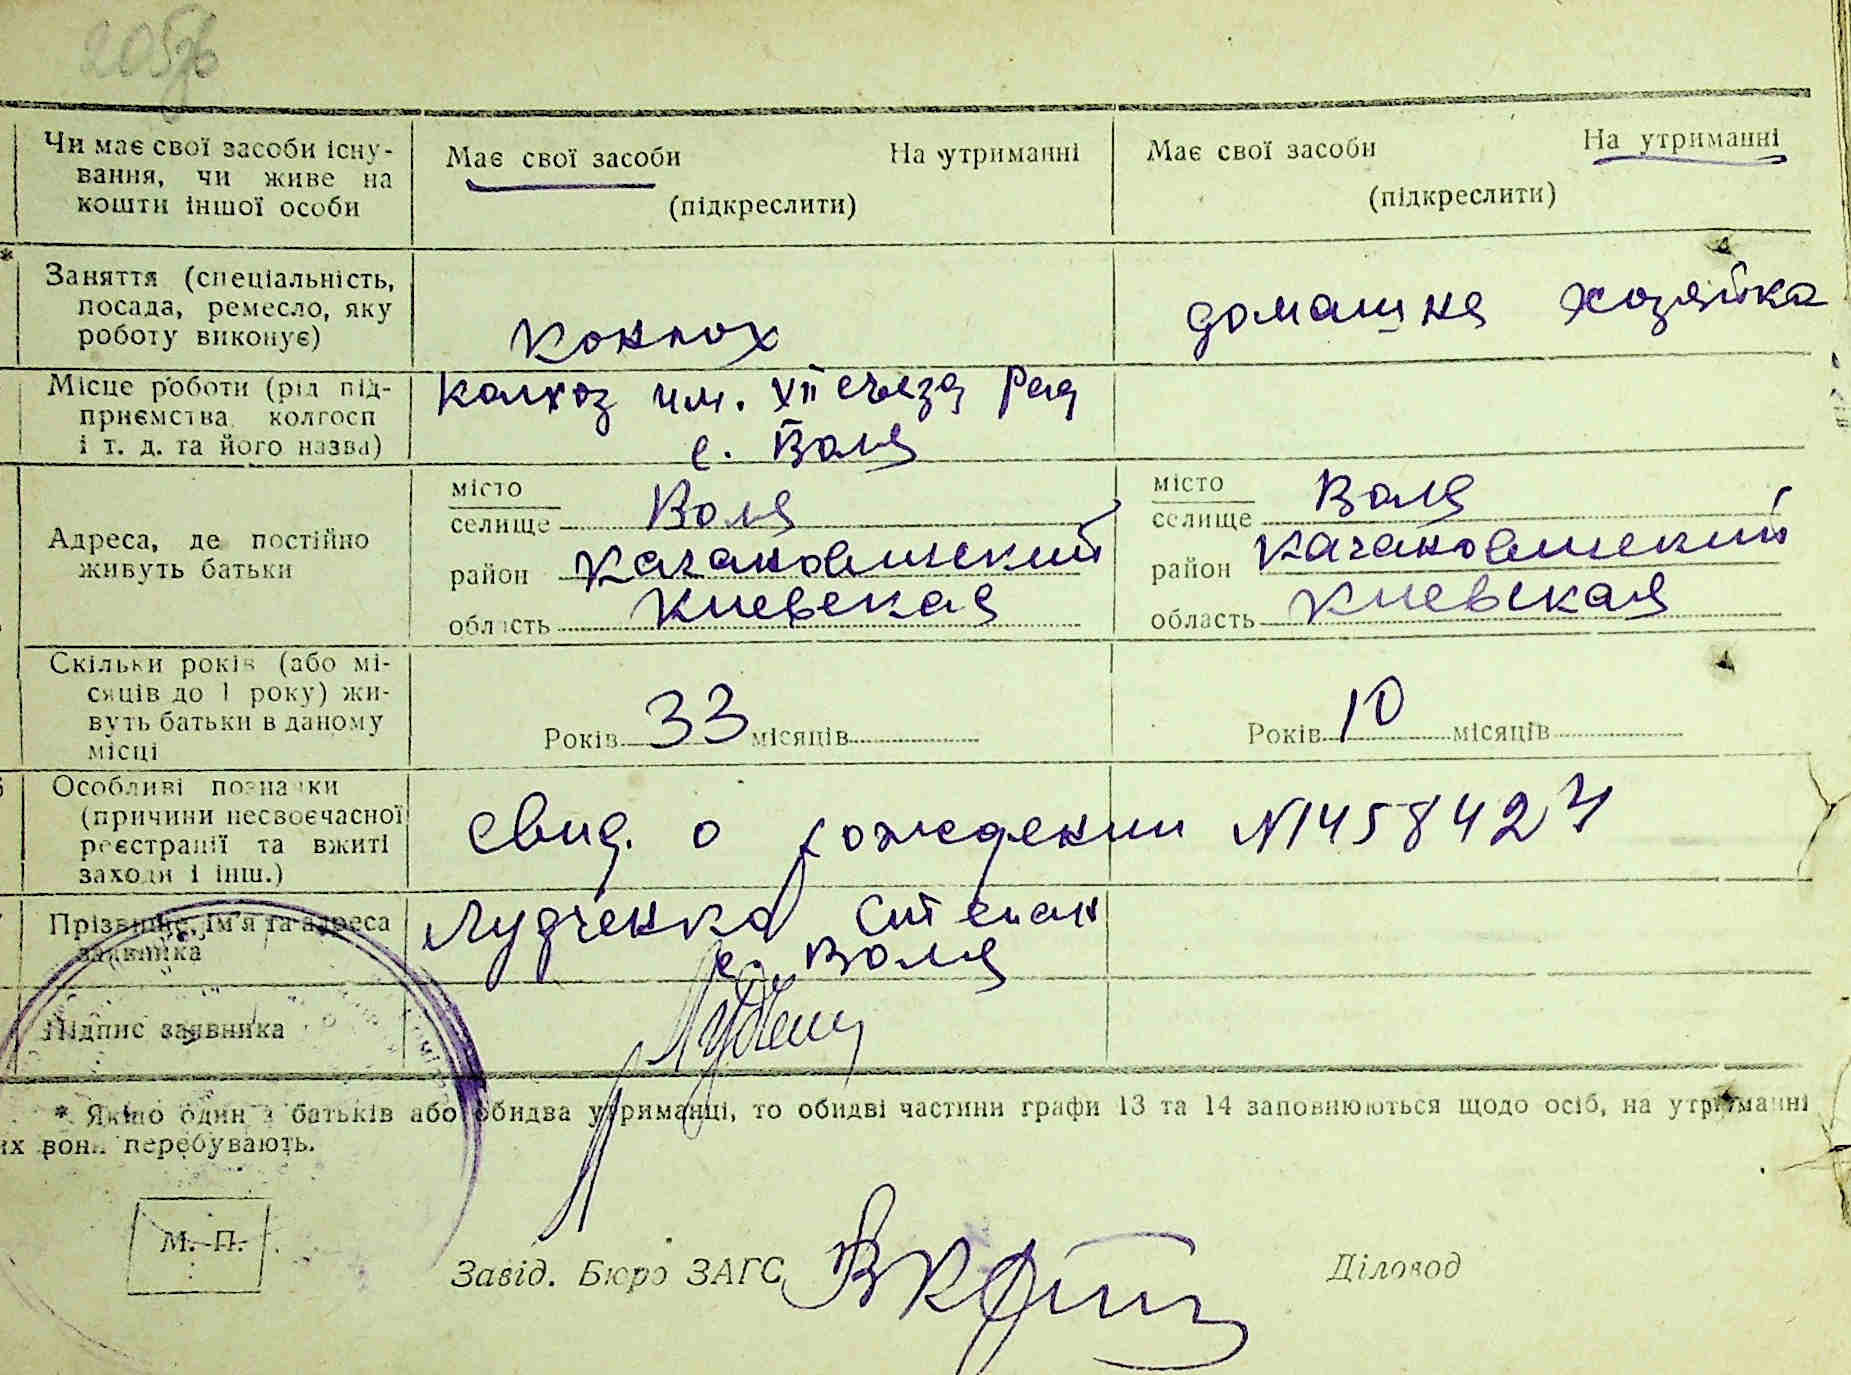 Чи має свої засоби існу-
вання, чи живе на
кошти іншої особи
Має свої засоби На утриманні
(підкреслити)
Має свої засоби На утриманні
(підкреслити)
*
Заняття (спеціальність,
посада, ремесло, яку
роботу виконує)
конюх
домашня хозяйка
Місце роботи (рід під-
приємства колгосп
і т. д. та його назва)
Колхоз им. XII съезда Рад
с. Воля
Адреса, де постійно
живуть батьки
місто
селище Воля
район Качановицкий
область Киевская
місто
селище Воля
район Качановицкий
область Киевская
Скільки років (або мі-
сяців до 1 року) жи-
вуть батьки в даному
місці
Років 33 місяців
Років 10 місяців
Особливі познаки
(причини несвоєчасної
реєстрації та вжиті
заходи і інш.)
свид. о рождении №1458424
Прізвище, ім'я та адреса
заявника
Лудченко Степан
с. Воля
Підпис заявника
* Якщо один з батьків або обидва утриманці, то обидві частини графи 13 та 14 заповнюються щодо осіб, на утриманні
их вони перебувають.
М. П.
Завід. Бюро ЗАГС
Діловод